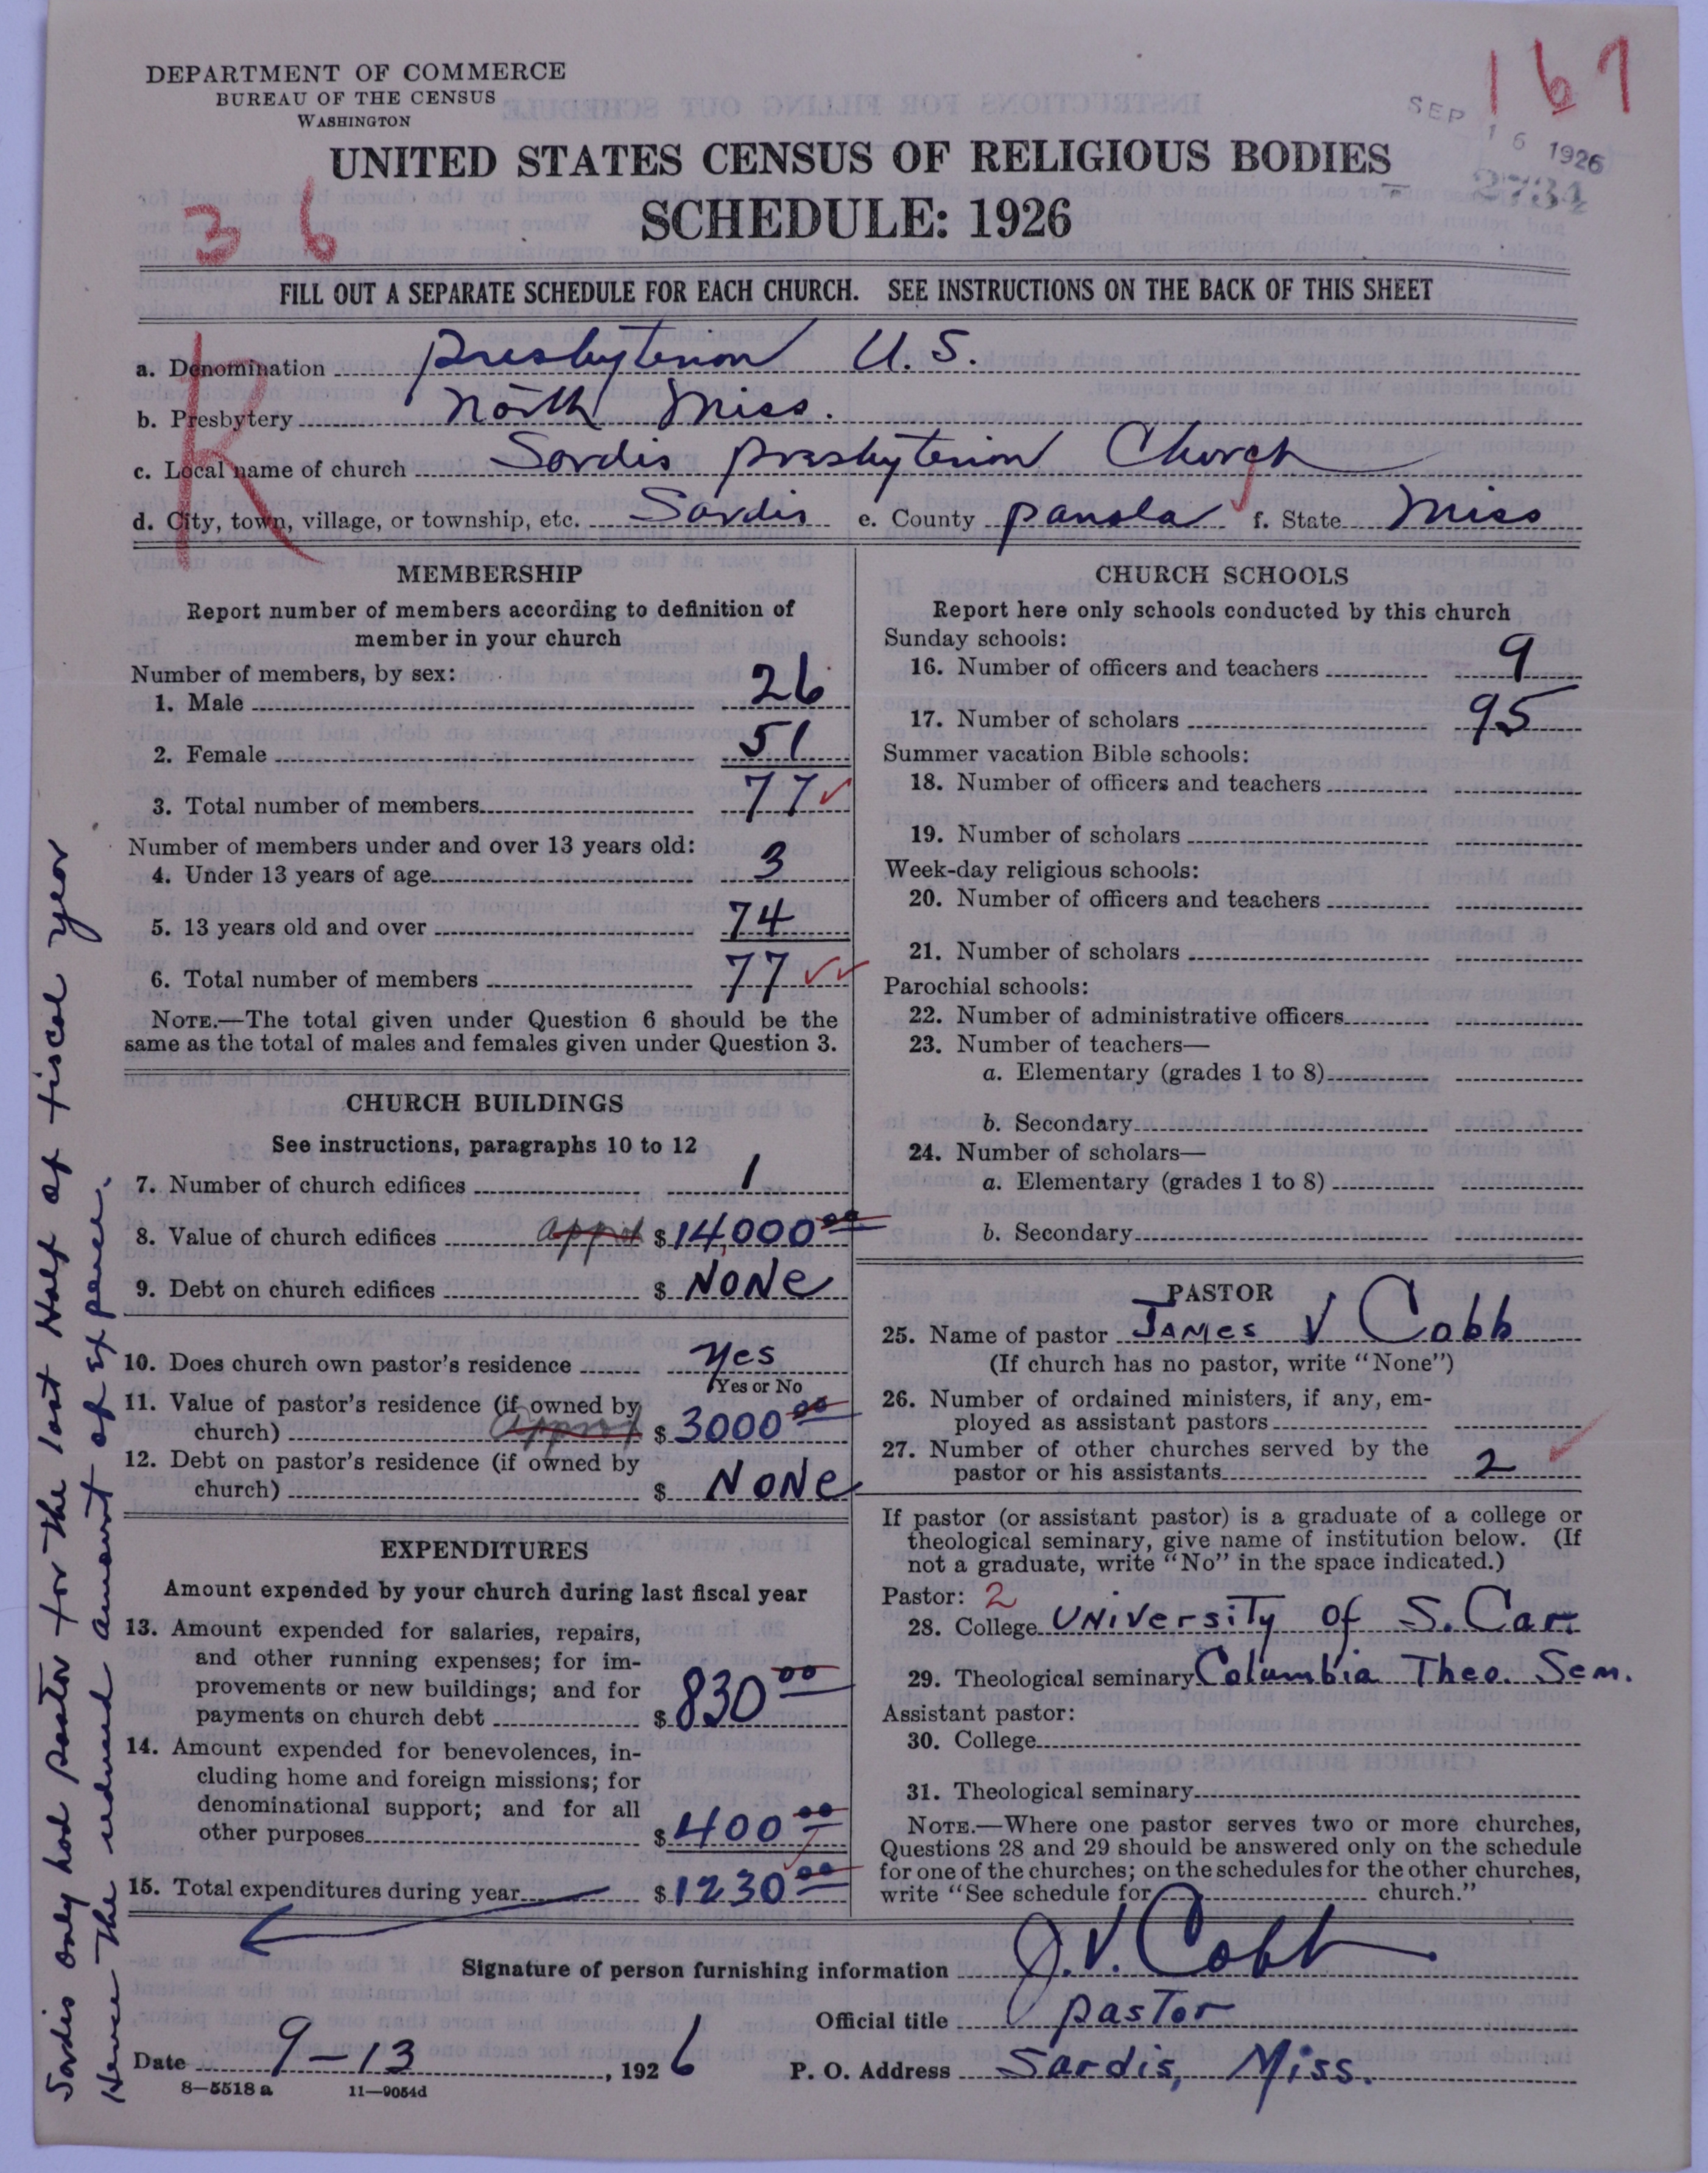 DEPARTMENT OF COMMERCE
BUREAU OF THE CENSUS
WASHINGTON
167
SEP 16 1926
2734
UNITED STATES CENSUS OF RELIGIOUS BODIES
SCHEDULE: 1926
36
FILL OUT A SEPARATE SCHEDULE FOR EACH CHURCH. SEE INSTRUCTIONS ON THE BACK OF THIS SHEET
R
a. Denomination Presbyterian U.S.
b. Presbytery North Miss.
c. Local name of church Sardis Presbyterian Church
d. City, town, village, or township, etc. Sardis e. County Panola f. State Miss
MEMBERSHIP
Report number of members according to definition of
member in your church
Number of members, by sex:
1. Male 26
2. Female 51
3. Total number of members 77
Number of members under and over 13 years old:
4. Under 13 years of age 3
5. 13 years old and over 74
6. Total number of members 77
NOTE.—The total given under Question 6 should be the
same as the total of males and females given under Question 3.
CHURCH BUILDINGS
See instructions, paragraphs 10 to 12
7. Number of church edifices 1
8. Value of church edifices $14,000 00
9. Debt on church edifices $ NONE
10. Does church own pastor's residence Yes
Yes or No
11. Value of pastor's residence (if owned by
church) $3000 00
12. Debt on pastor's residence (if owned by
church) $ NONE
EXPENDITURES
Amount expended by your church during last fiscal year
13. Amount expended for salaries, repairs,
and other running expenses; for im-
provements or new buildings; and for
payments on church debt $830 00
14. Amount expended for benevolences, in-
cluding home and foreign missions; for
denominational support; and for all
other purposes $400 00
15. Total expenditures during year $1230 00
CHURCH SCHOOLS
Report here only schools conducted by this church
Sunday schools:
16. Number of officers and teachers 9
17. Number of scholars 95
Summer vacation Bible schools:
18. Number of officers and teachers
19. Number of scholars
Week-day religious schools:
20. Number of officers and teachers
21. Number of scholars
Parochial schools:
22. Number of administrative officers
23. Number of teachers—
a. Elementary (grades 1 to 8)
b. Secondary
24. Number of scholars—
a. Elementary (grades 1 to 8)
b. Secondary
PASTOR
25. Name of pastor James V Cobb
(If church has no pastor, write "None")
26. Number of ordained ministers, if any, em-
ployed as assistant pastors
27. Number of other churches served by the
pastor or his assistants 2
If pastor (or assistant pastor) is a graduate of a college or
theological seminary, give name of institution below. (If
not a graduate, write "No" in the space indicated.)
Pastor: 2
28. College University of S. Car.
29. Theological seminary Columbia Theo. Sem.
Assistant pastor:
30. College
31. Theological seminary
NOTE.—Where one pastor serves two or more churches,
Questions 28 and 29 should be answered only on the schedule
for one of the churches; on the schedules for the other churches,
write "See schedule for church."
Signature of person furnishing information J. V. Cobb
Official title Pastor
Date 9-13, 1926 P. O. Address Sardis, Miss.
8—5518 a 11—9054d
Sardis only had Pastor for the last Half of fiscal year
Hence the reduced amount of expense.